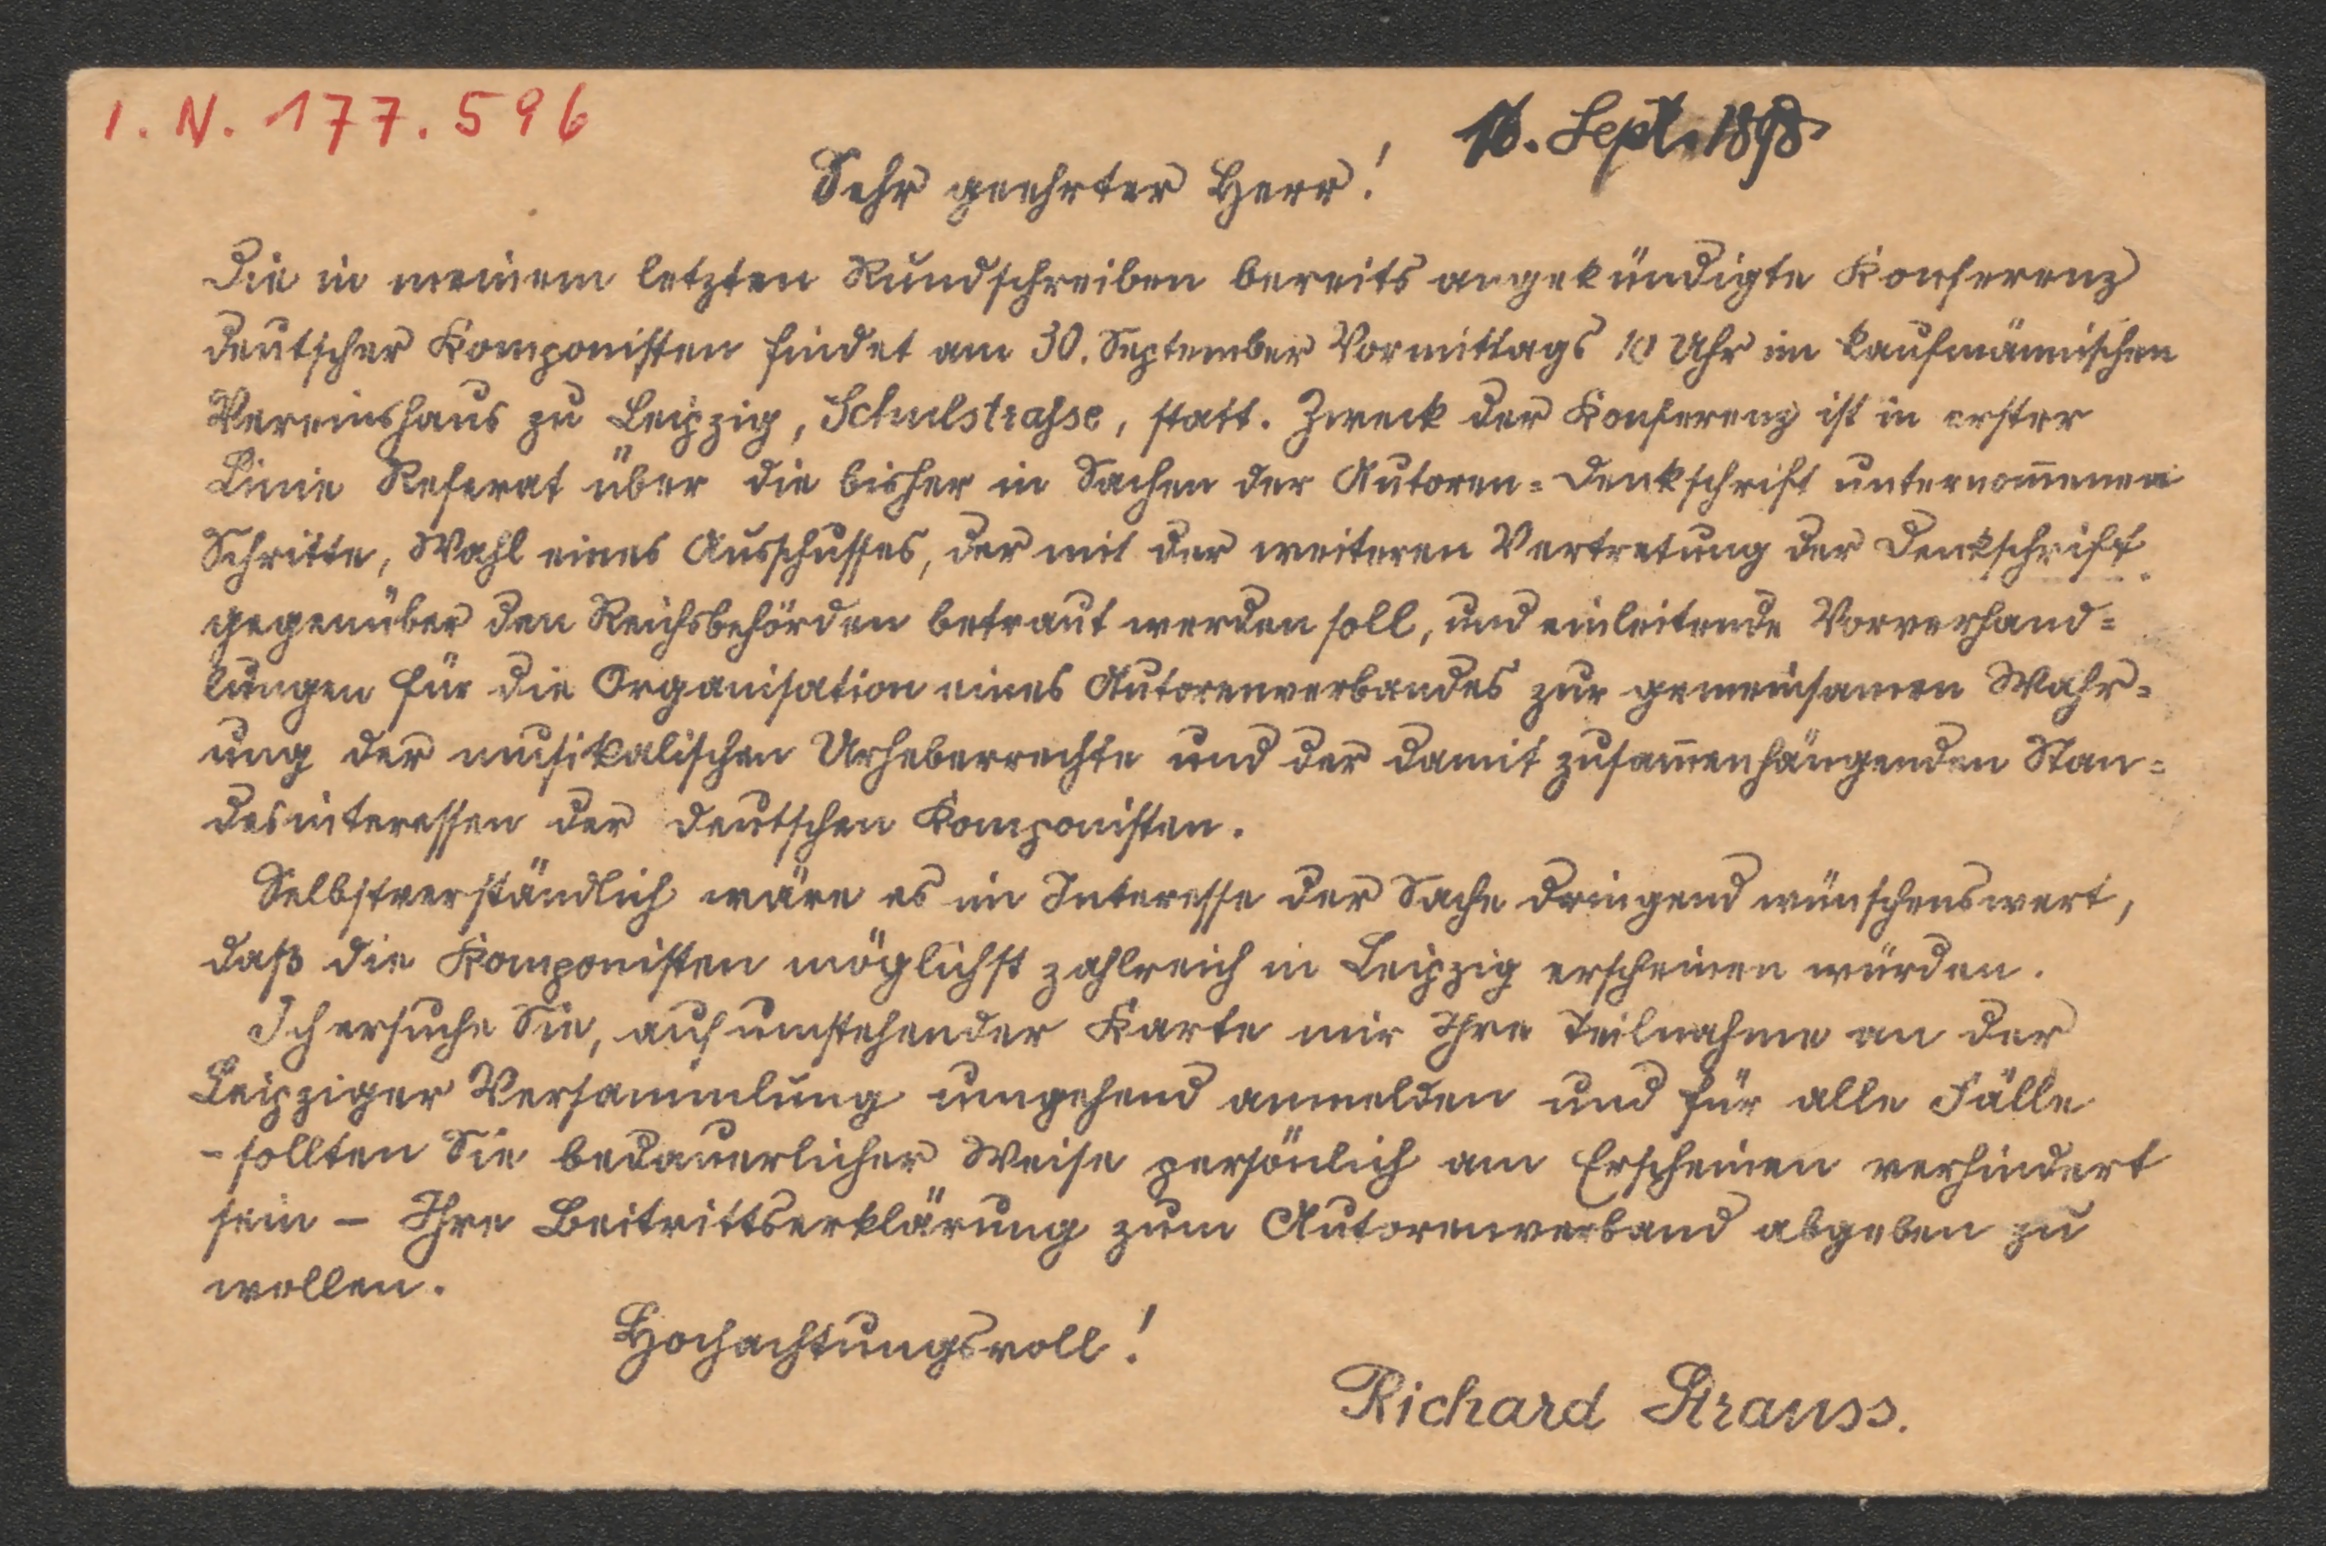 I. N. 177.596
16. Sept. 1898
Sehr geehrter Herr!
Die in meinem letzten Rundschreiben bereits angekündigte Konferenz
deutscher Komponisten findet am 30. September Vormittags 10 Uhr im kaufmännischen
Vereinshaus zu Leipzig, Schulstrasse, statt. Zweck der Konferenz ist in erster
Linie Referat über die bisher in Sachen der Autoren=Denkschrift unternom̅enen
Schritte, Wahl eines Ausschusses, der mit der weiteren Vertretung der Denkschrift
gegenüber den Reichsbehörden betraut werden soll, und einleitende Vorverhand=
lungen für die Organisation eines Autorenverbandes zur gemeinsamen Wahr=
ung der musikalischen Urheberrechte und der damit zusam̅enhängenden Stan=
desinteressen der deutschen Komponisten.
Selbstverständlich wäre es im Interesse der Sache dringend wünschenswert,
daß die Komponisten möglichst zahlreich in Leipzig erscheinen würden.
Ich ersuche Sie, auf umstehender Karte mir Ihre Teilnahme an der
Leipziger Versammlung umgehend anmelden und für alle Fälle
- sollten Sie bedauerlicher Weise persönlich am Erscheinen verhindert
sein - Ihre Beitrittserklärung zum Autorenverband abgeben zu
wollen.
Hochachtungsvoll!
Richard Strauss.